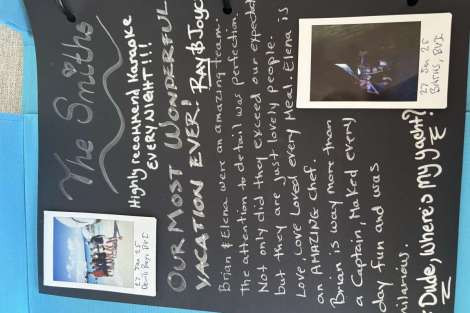 The Smiths
Highly recommend Karaoke
EVERY NIGHT!!!
OUR MOST WONDERFUL
VACATION EVER! RAY & JOYC
Brian & Elena were an amazing team.
the attention to detail was perfection.
Not only did they exceed our expectat
but they are just lovely people.
Love, Love Loved every Meal. Elena is
an AMAZING chef.
Brian is way more than
a Captain, Maked every
day fun and was
hilarious.
*Dude, Where's my yacht?
27 Jan 25
Devils Bay, BVI
27 Jan 25
Baths, BVI